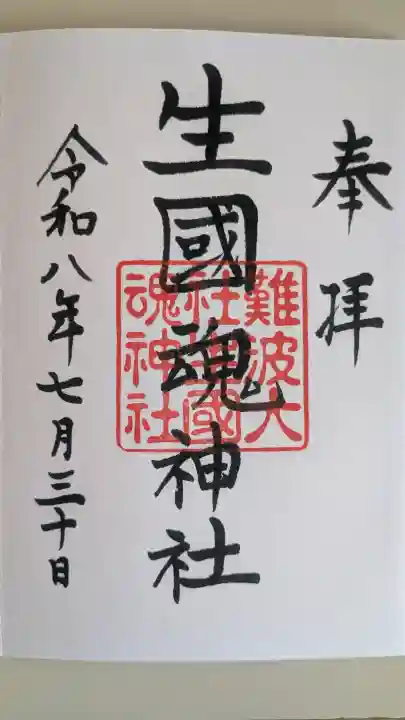 奉拝
生國魂神社
難波大
社生國
魂神社
令和八年七月三十日